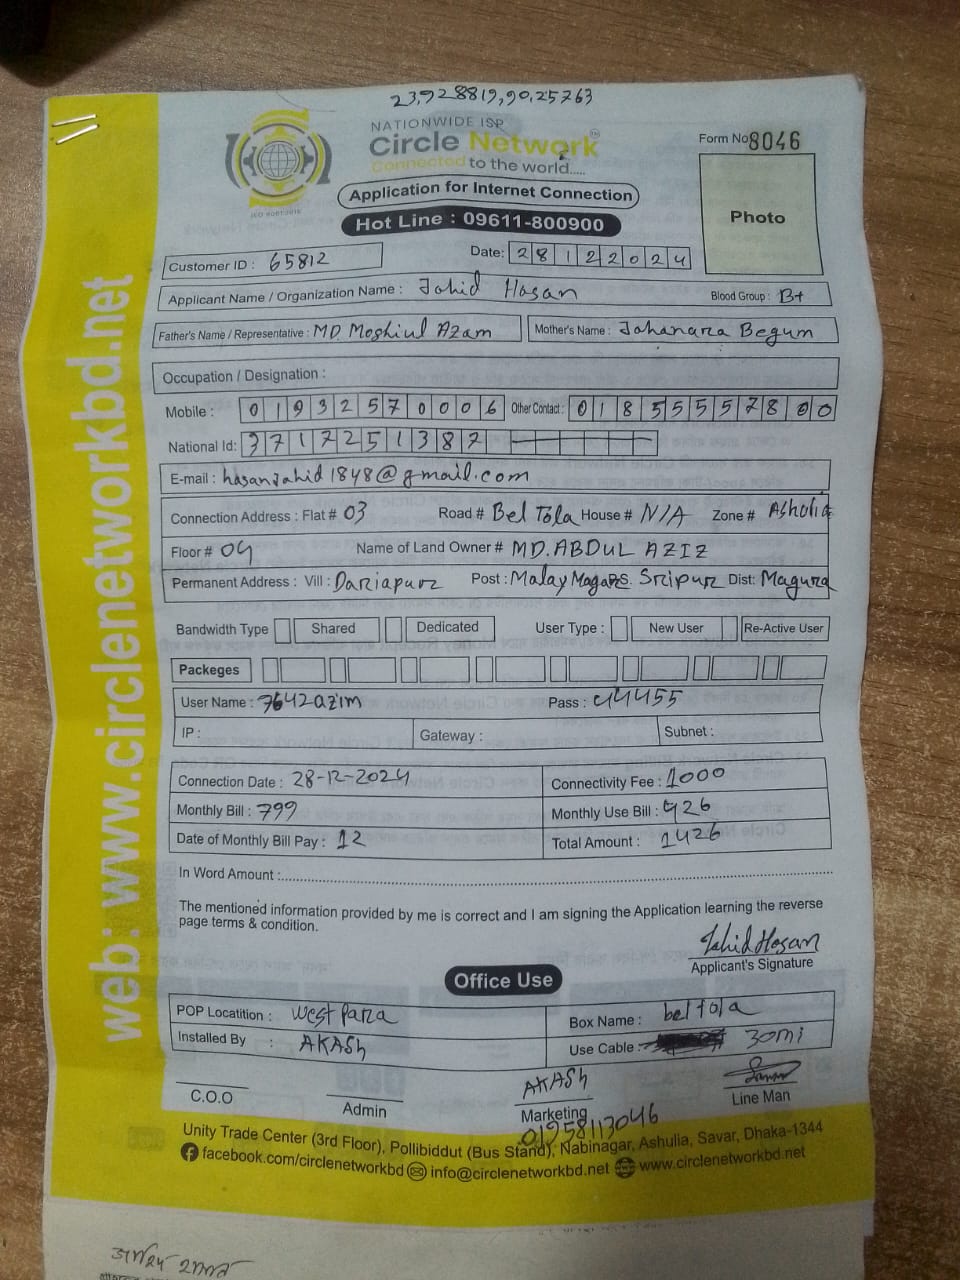 23,928819,90,25763
NATIONWIDE ISP
Circle Network
Connected to the world.....
ISO 9001:2015
Form No 8046
Application for Internet Connection
Photo
Hot Line : 09611-800900
Customer ID : 65812
Date: 28122024
Applicant Name / Organization Name : Jahid Hasan Blood Group : B+
Father's Name / Representative : MD. Moshiul Azam Mother's Name : Jahanara Begum
Occupation / Designation :
Mobile : 01932570006 Other Contact : 01855557800
National Id: 3717251387
E-mail : hasanjahid1848@gmail.com
Connection Address : Flat # 03 Road # Bel Tola House # N/A Zone # Ashulia
Floor # 04 Name of Land Owner # MD. ABDUL AZIZ
Permanent Address : Vill : Dariapur Post : P.S. Sripur Dist: Magura
Bandwidth Type Shared Dedicated User Type : New User Re-Active User
Packeges
User Name : 7642azim Pass : 44455
IP : Gateway : Subnet :
Connection Date : 28-12-2024 Connectivity Fee : 1000
Monthly Bill : 799 Monthly Use Bill : 426
Date of Monthly Bill Pay : 12 Total Amount : 1426
In Word Amount :
The mentioned information provided by me is correct and I am signing the Application learning the reverse
page terms & condition.
Jahid Hasan
Applicant's Signature
Office Use
POP Locatition : west para Box Name : bel tola
Installed By : AKASh Use Cable : 30mi
AKASh
C.O.O Admin Marketing Line Man
01958113046
Unity Trade Center (3rd Floor), Pollibiddut (Bus Stand), Nabinagar, Ashulia, Savar, Dhaka-1344
facebook.com/circlenetworkbd info@circlenetworkbd.net www.circlenetworkbd.net
web: www.circlenetworkbd.net